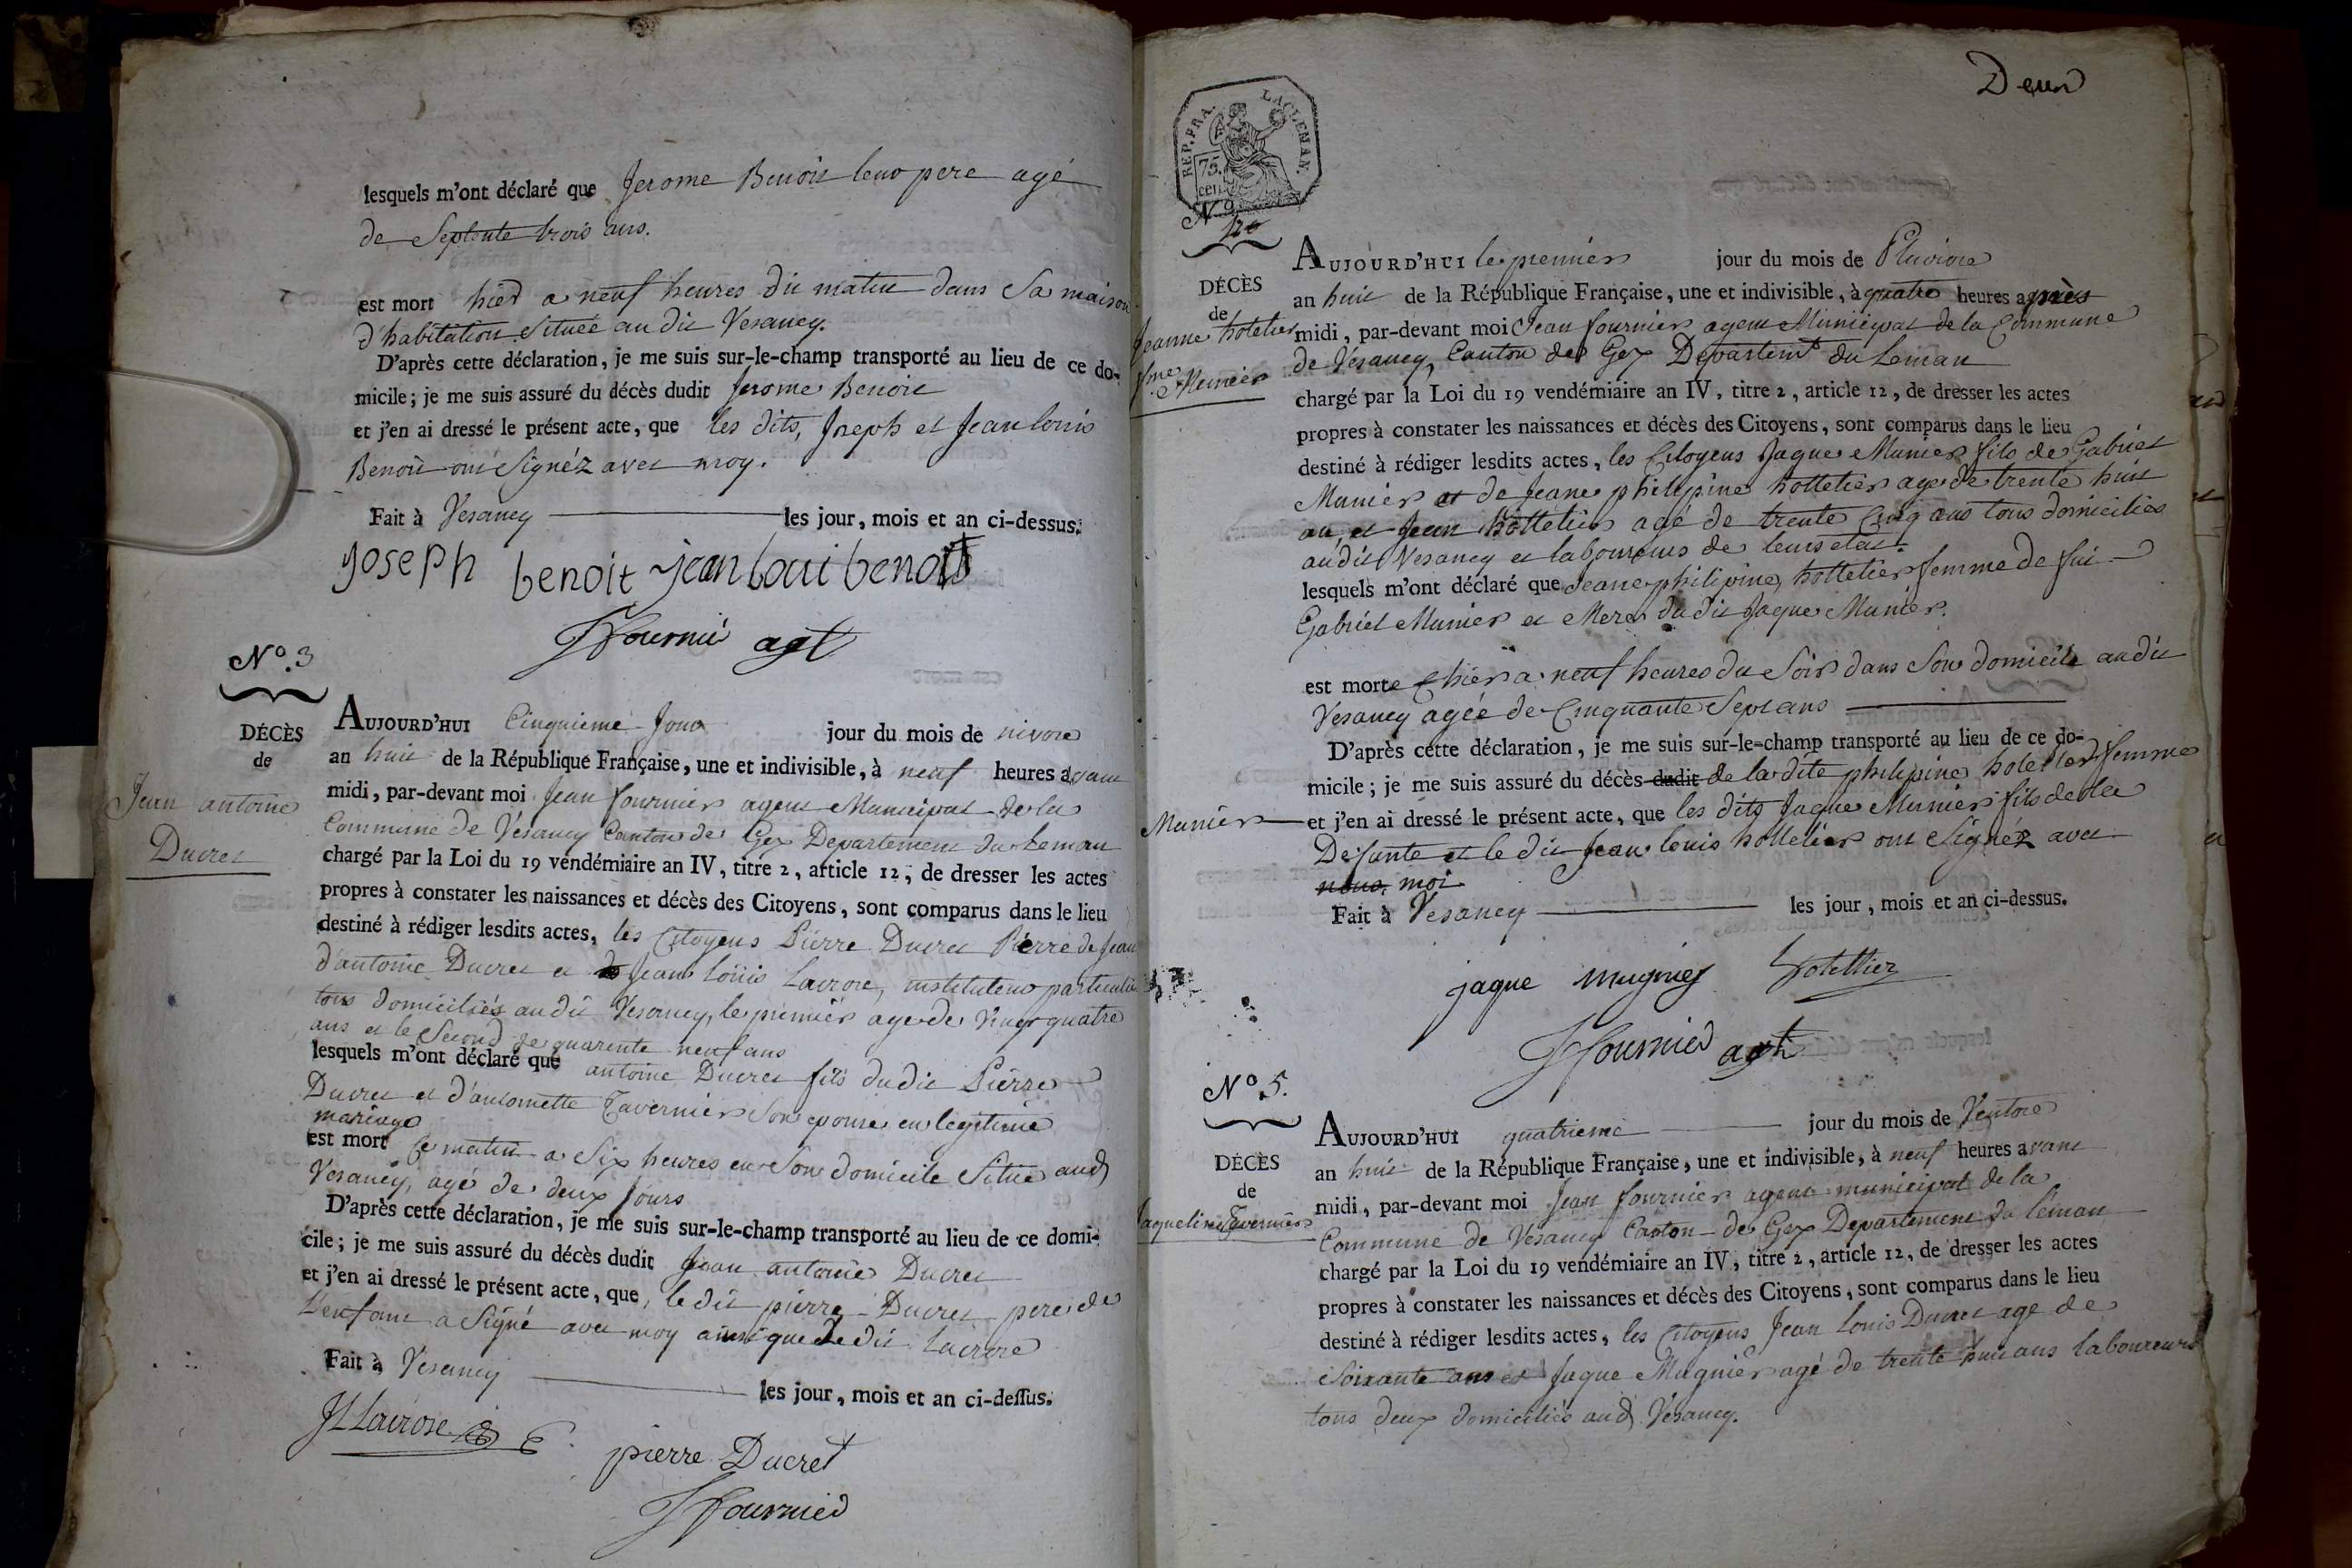 lesquels m'ont déclaré que Jerome Benoit leur pere agé
de Septente trois ans.
est mort hier a neuf heures du matin dans Sa maison
d'habitation Située au dit Vesancy.
D'après cette déclaration, je me suis sur-le-champ transporté au lieu de ce do-
micile; je me suis assuré du décès dudit Jerome Benoit
et j'en ai dressé le présent acte, que les dits, Joseph et Jean louis
Benoit ont Signéz avec moy.
Fait à Vesancy les jour, mois et an ci-dessus.
joseph benoit jean loui benoit
J fournié agt
N.º 3
DÉCÈS
de
Jean antoine
Ducret
AUJOURD'HUI Cinquieme Jour jour du mois de nivose
an huit de la République Française, une et indivisible, à neuf heures avant
midi, par-devant moi Jean fournier agent Municipal de la
Commune de Vesancy Canton de Gex Departement du Leman
chargé par la Loi du 19 vendémiaire an IV, titre 2, article 12, de dresser les actes
propres à constater les naissances et décès des Citoyens, sont comparus dans le lieu
destiné à rédiger lesdits actes, les Citoyens Pierre Ducret Pierre de Jean
d'antoine Ducret et Jean Loüis Lacroix, instituteur particulier
tous domiciliés au dit Vesancy, le premier age de Vingt quatre
ans et le Second de quarente neuf ans
lesquels m'ont déclaré que antoine Ducret fils du dit Pierre
Ducret et d'antoinette Tavernier Son epouse en legitime
mariage
est mort Ce matin a Six heures en Son domicile Situé aud
Vesancy, agé de deux jours
D'après cette déclaration, je me suis sur-le-champ transporté au lieu de ce domi-
cile; je me suis assuré du décès dudit Jean antoine Ducret
et j'en ai dressé le présent acte, que, le dit pierre Ducret pere de
L'enfant a Signé avec moy ainsi que Le dit Lacroix
Fait à Vesancy les jour, mois et an ci-dessus.
JL Lacroix
pierre Ducret
J fournier
Deux
REP. FRA. LAC LEMAN.
75.
cen.
Nº
DÉCÈS
de
Jeanne hotelier
fme Munier
AUJOURD'HUI le premier jour du mois de Pluviose
an huit de la République Française, une et indivisible, à quatre heures après
midi, par-devant moi Jean fournier agent Municipal de la Commune
de Vesancy, Canton de Gex Departemt du Leman
chargé par la Loi du 19 vendémiaire an IV, titre 2, article 12, de dresser les actes
propres à constater les naissances et décès des Citoyens, sont comparus dans le lieu
destiné à rédiger lesdits actes, les Citoyens Jaque Munier fils de Gabriel
Munier et de Jeane philipine hottelier age de trente huit
an, et Jean hottelier agé de trente Cinq ans tous domiciliés
au dit Vesancy et laboureurs de leurs etat.
lesquels m'ont déclaré que Jeane philipine hottelier femme de fut
Gabriel Munier et Mere du dit Jaque Munier.
est morte hier a neuf heures du Soir dans Son domicile au dit
Vesancy agée de Cinquante Sept ans
D'après cette déclaration, je me suis sur-le-champ transporté au lieu de ce do-
micile; je me suis assuré du décès dudit de la dite philipine hotellier femme
Munier
et j'en ai dressé le présent acte, que les dits Jaque Munier fils de la
Defunte et le dit Jean louis hottelier ont Signéz avec
nous, moi
Fait à Vesancy les jour, mois et an ci-dessus.
jaque mugnier hotellier
J fournier agt
Nº 5.
DÉCÈS
de
Jaqueline Tavernier
AUJOURD'HUI quatrieme jour du mois de Ventose
an huit de la République Française, une et indivisible, à neuf heures avant
midi, par-devant moi Jean fournier agent municipal de la
Commune de Vesancy Canton de Gex Departement du leman
chargé par la Loi du 19 vendémiaire an IV, titre 2, article 12, de dresser les actes
propres à constater les naissances et décès des Citoyens, sont comparus dans le lieu
destiné à rédiger lesdits actes, les Citoyens Jean Louis Ducret age de
Soixante ans et Jaque Mugnier agé de trente huit ans laboureurs
tous deux domiciliés aud Vesancy.